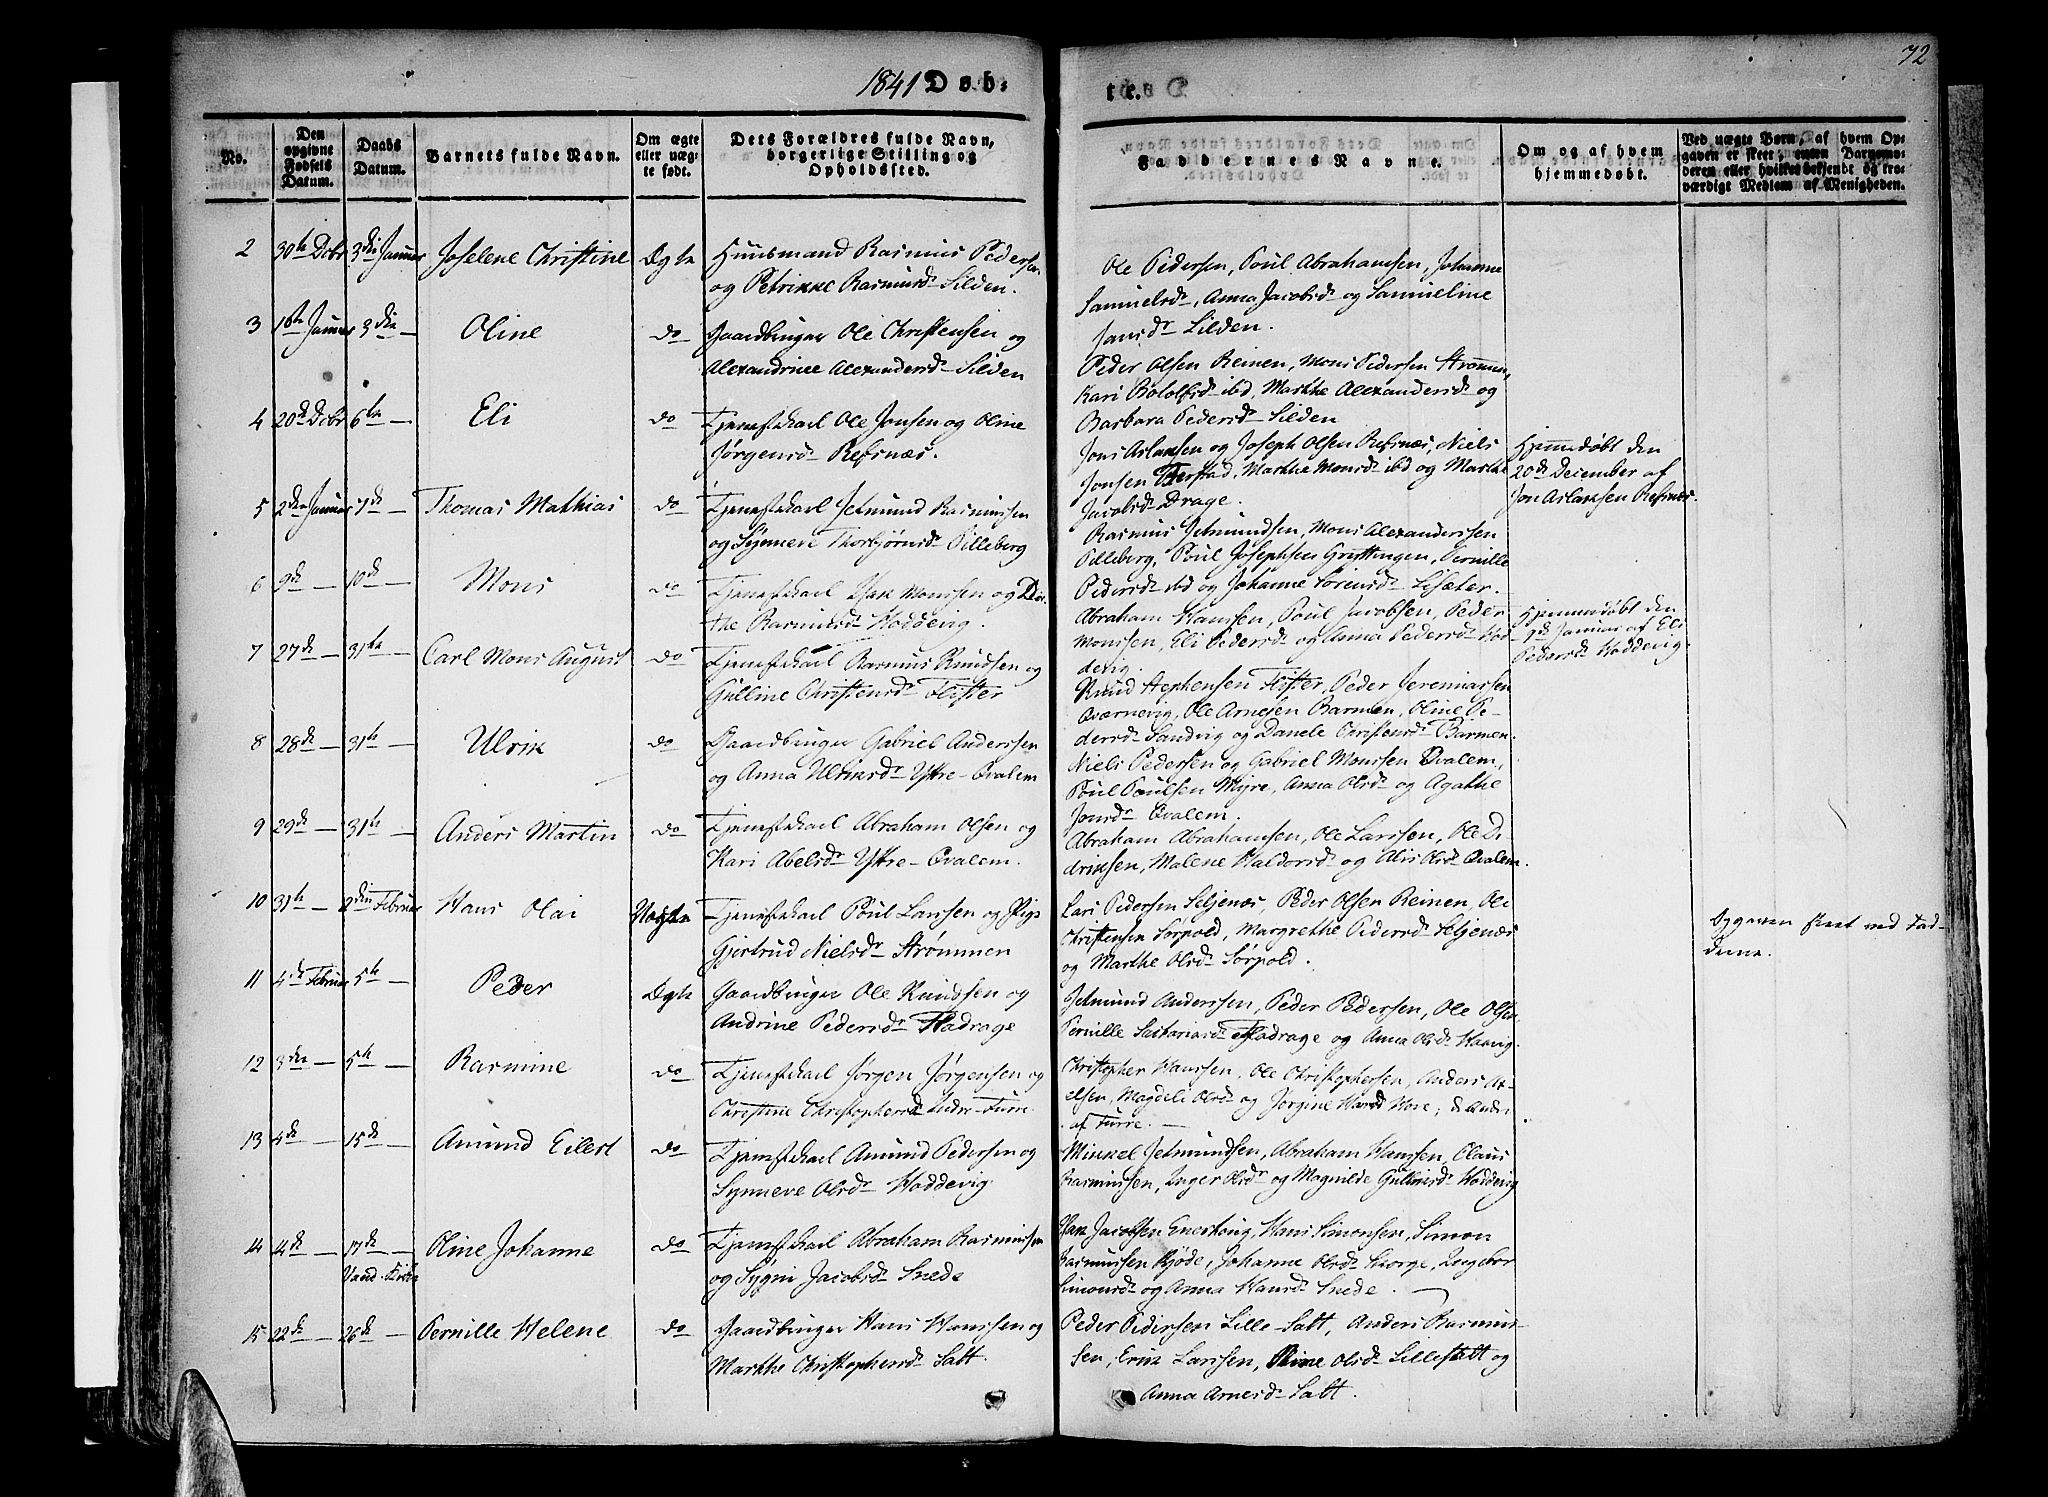 72
1841 Døb:
te.
No.
Den opgivne Fødsels Datum.
Daabs Datum.
Barnets fulde Navn.
Om ægte eller uæg- te født.
Dets Forældres fulde Navn, borgerlige Stilling og Opholdssted.
Faddernes Navne.
Om og af hvem hjemmedøbt.
Ved uægte Børn, af hvem Op- gaven er skeet; enten Barnemo- deren eller hvilket bekjendt og tro- værdigt Medlem af Menigheden.
2 30te Dcbr 3die Januar Joselene Christine Ægte Huusmand Rasmus Pedersen
og Petrikke Rasmusdr Silden.
Ole Pedersen, Poul Abrahamsen, Johanne
Samuelsdr, Anna Jacobsdr og Samueline
Jansdr Silden.
3 1ste Januar 3die — Oline do Gaardbruger Ole Christensen og
Alexandrine Alexandersdr Silden
Peder Olsen Reinen, Mons Pedersen Strømmen,
Kari Rololfsdr ibd, Marthe Alexandersdr og
Barbara Pedersdr Silden
4 20de Dcbr 6te — Eli do Tjenestekarl Ole Jonsen og Oline
Jørgensdr Refsnæs.
Jons Aslaksen og Joseph Olsen Refsnæs, Niels
Jonsen Færstad, Marthe Monsdr ibd og Marthe
Jacobsdr Drage.
Hjemmedøbt den
20de December af
Jon Aslaksen Refsnæs.
5 2den Januar 7de — Thomas Mathias do Tjenestekarl Jetmund Rasmussen
og Synneve Thorbjørnsdr Pilleberg
Rasmus Jetmundsen, Mons Alexandersen
Pilleberg, Poul Josephsen Gryttingen, Pernille
Pedersdr ibd og Johanne Sørensdr Lisæter.
6 9de — 10de — Mons do Tjenestekarl Isak Monssen og Dor-
the Rasmusdr Hoddevig.
Abraham Hanssen, Poul Jacobsen, Peder
Monssen, Eli Pedersdr og Anna Pedersdr Hod-
devig.
Hjemmedøbt den
9de Januar af Eli
Pedersdr Hoddevig.
7 27de — 31te — Carl Mons August do Tjenestekarl Rasmus Knudsen og
Gulline Christensdr Flister
Knud Stephensen Flister, Peder Jeremiassen
Qværnevig, Ole Arnesen Barmen, Oline Pe-
dersdr Sandvig og Danele Christensdr Barmen.
8 28de — 31te — Ulrik do Gaardbruger Gabriel Anderssen
og Anna Ulriksdr Ytre-Qvalem
Niels Pedersen og Gabriel Monssen Qvalem,
Poul Poulsen Myre, Anna Olsdr og Agathe
Jonsdr Qvalem.
9 29de — 31te — Anders Martin do Tjenestekarl Abraham Olsen og
Kari Abelsdr Ytre-Qvalem.
Abraham Abrahamsen, Ole Larssen, Ole Di-
driksen, Malene Haldorsdr og Alis Olsdr Qvalem.
10 31te — 2den Februar Hans Olai Uægte Tjenestekarl Poul Larssen og Pige
Gjertrud Nielsdr Strømmen
Lars Pedersen Seljenæs, Peder Olsen Reinen, Ole
Christensen Sørpold, Margrethe Pedersdr Seljenæs
og Marthe Olsdr Sørpold.
Opgaven skeet ved Fad-
derne.
11 4de Februar 5te — Peder Ægte Gaardbruger Ole Knudsen og
Andrine Pedersdr Fladrage
Jetmund Anderssen, Peder Pedersen, Ole Olsen
Pernille Sachariasdr Fladrage og Anna Olsdr Haavig.
12 3die — 5te — Rasmine do Tjenestekarl Jørgen Jørgensen og
Christine Christophersdr Indre-Furre.
Christopher Hanssen, Ole Christophersen, Anders Ax-
elsen, Magdeli Olsdr og Jørgine Hansdr Hove;
af Furre. —
13 4de — 15de — Amund Eilert do Tjenestekarl Amund Pedersen og
Synneve Olsdr Hoddevig
Mikkel Jetmundsen, Abraham Hanssen, Claus
Rasmussen, Inger Olsdr og Magnilde Gullaksdr Hoddevig
14 4de — 17de — Oline Johanne do Tjenestekarl Abraham Rasmussen
og Sygni Jacobsdr Snede
Isak Jacobsen Enerhaug, Hans Simonsen, Simon
Rasmussen Kjøde, Johanne Olsdr Skorge, Ingebor
Simonsdr og Anna Hansdr Snede.
15 22de — 26de — Pernille Helene do Gaardbruger Hans Hanssen og
Marthe Christophersdr Salt.
Peder Pedersen Lille-Salt, Anders Rasmus-
sen, Erik Larssen, Oline Olsdr Lillesalt og
Anna Arnesdr Salt.